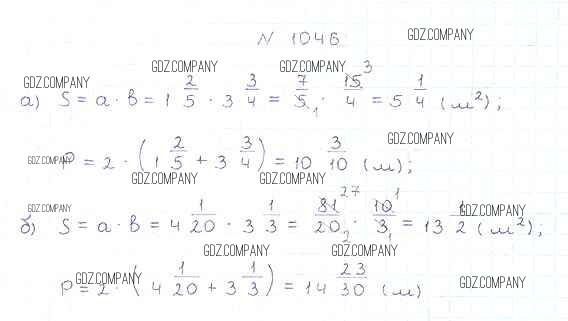 N 1046 GDZ.COMPANY
GDZ.COMPANY GDZ.COMPANY GDZ.COMPANY
а) S = a · b = 1 2/5 · 3 3/4 = 7/5 1 · 15 3/4 = 5 1/4 (м²);
GDZ.COMPANY
GDZ.COMPANY P = 2 · (1 2/5 + 3 3/4) = 10 3/10 (м);
GDZ.COMPANY GDZ.COMPANY
GDZ.COMPANY GDZ.COMPANY
б) S = a · b = 4 1/20 · 3 1/3 = 81 27/20 2 · 10 1/3 1 = 13 1/2 (м²);
GDZ.COMPANY GDZ.COMPANY
GDZ.COMPANY GDZ.COMPANY
P = 2 · (4 1/20 + 3 1/3) = 14 23/30 (м)